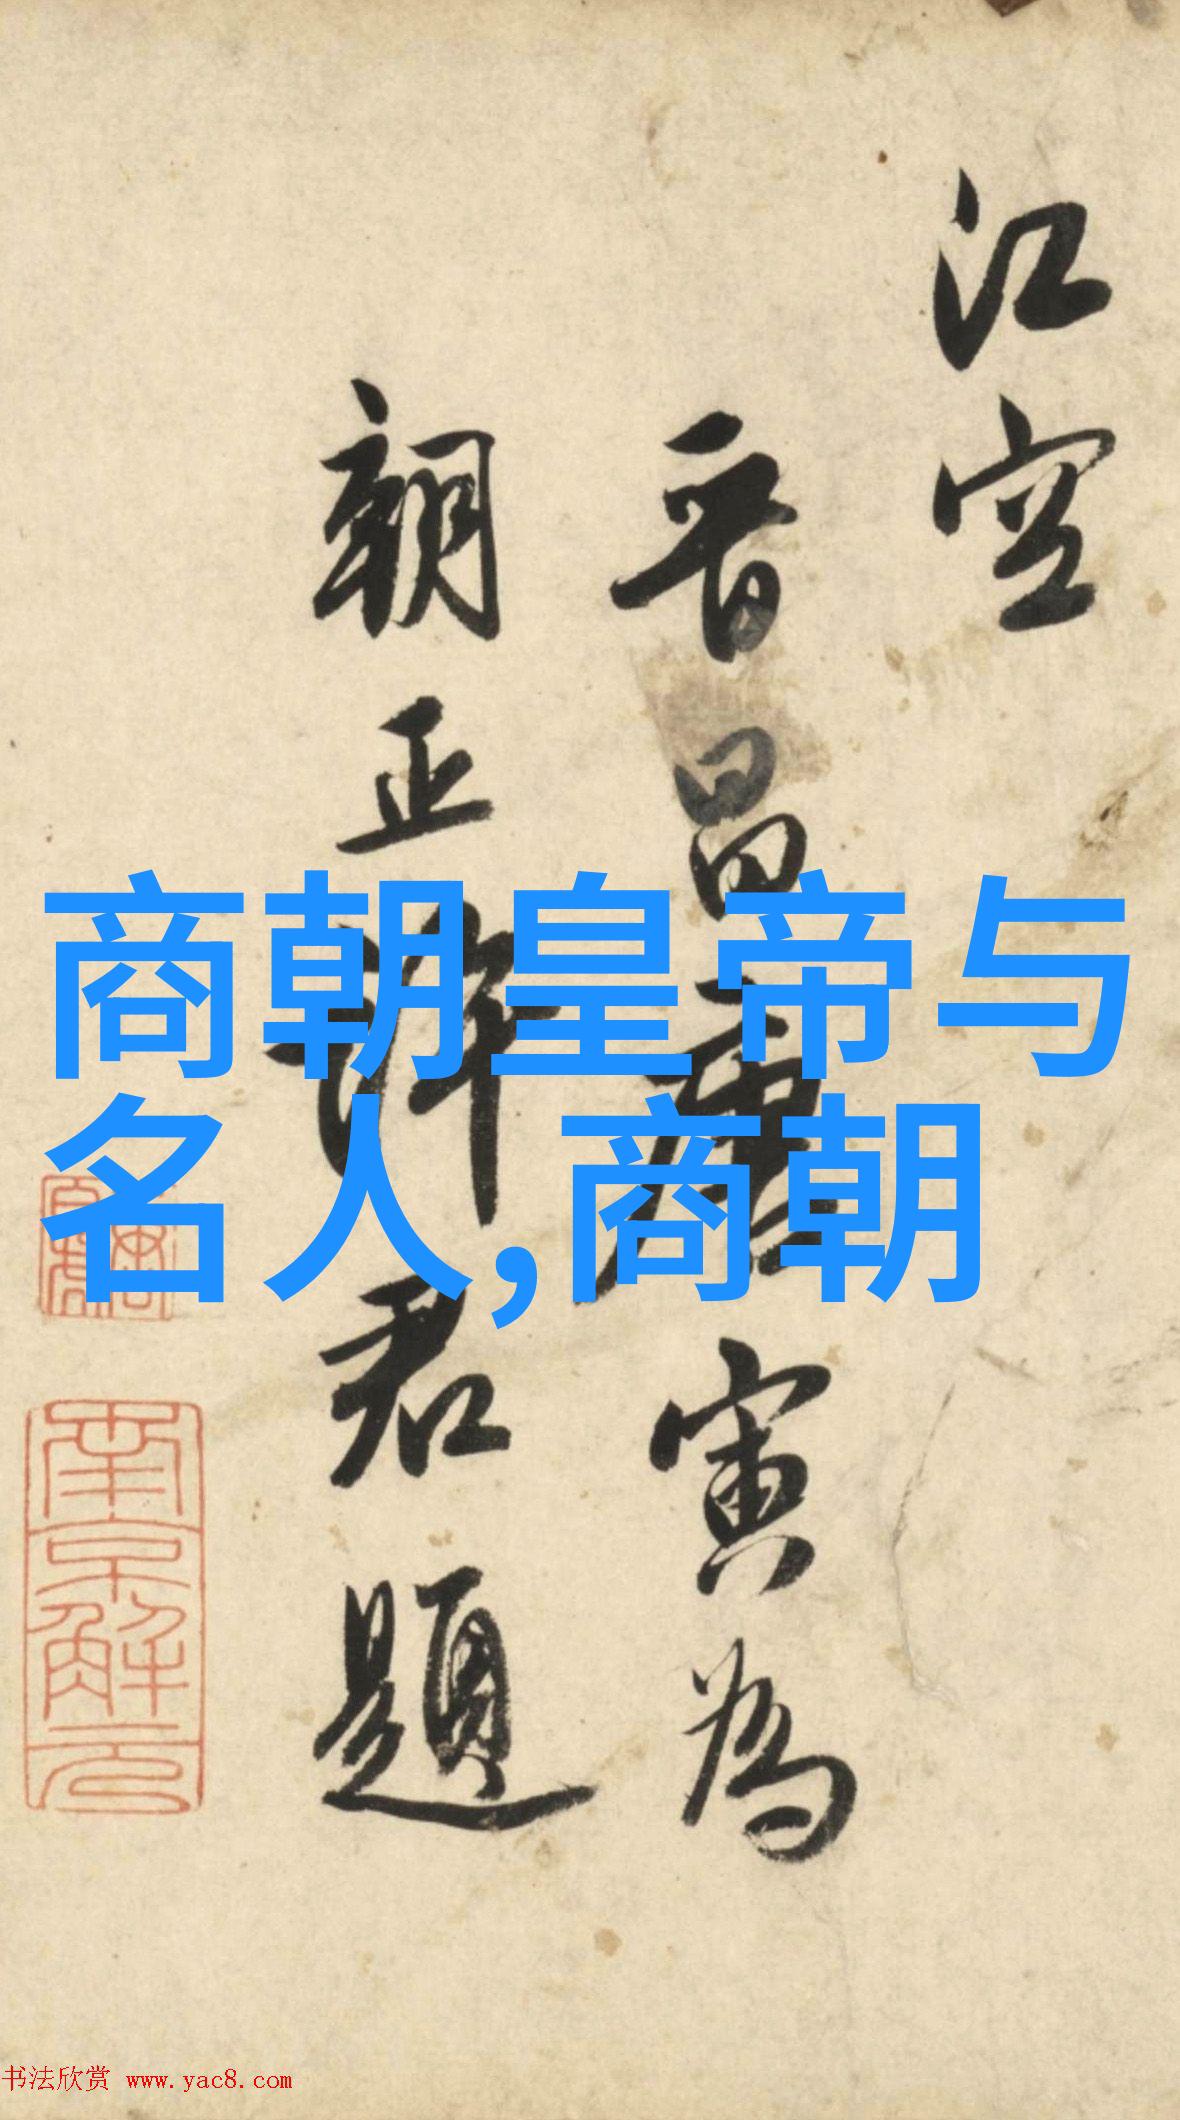 江空
晋昌唐寅為
朝正許君題
商朝皇帝与
名人,商朝
南京解元
书法欣赏 www.yac8.com